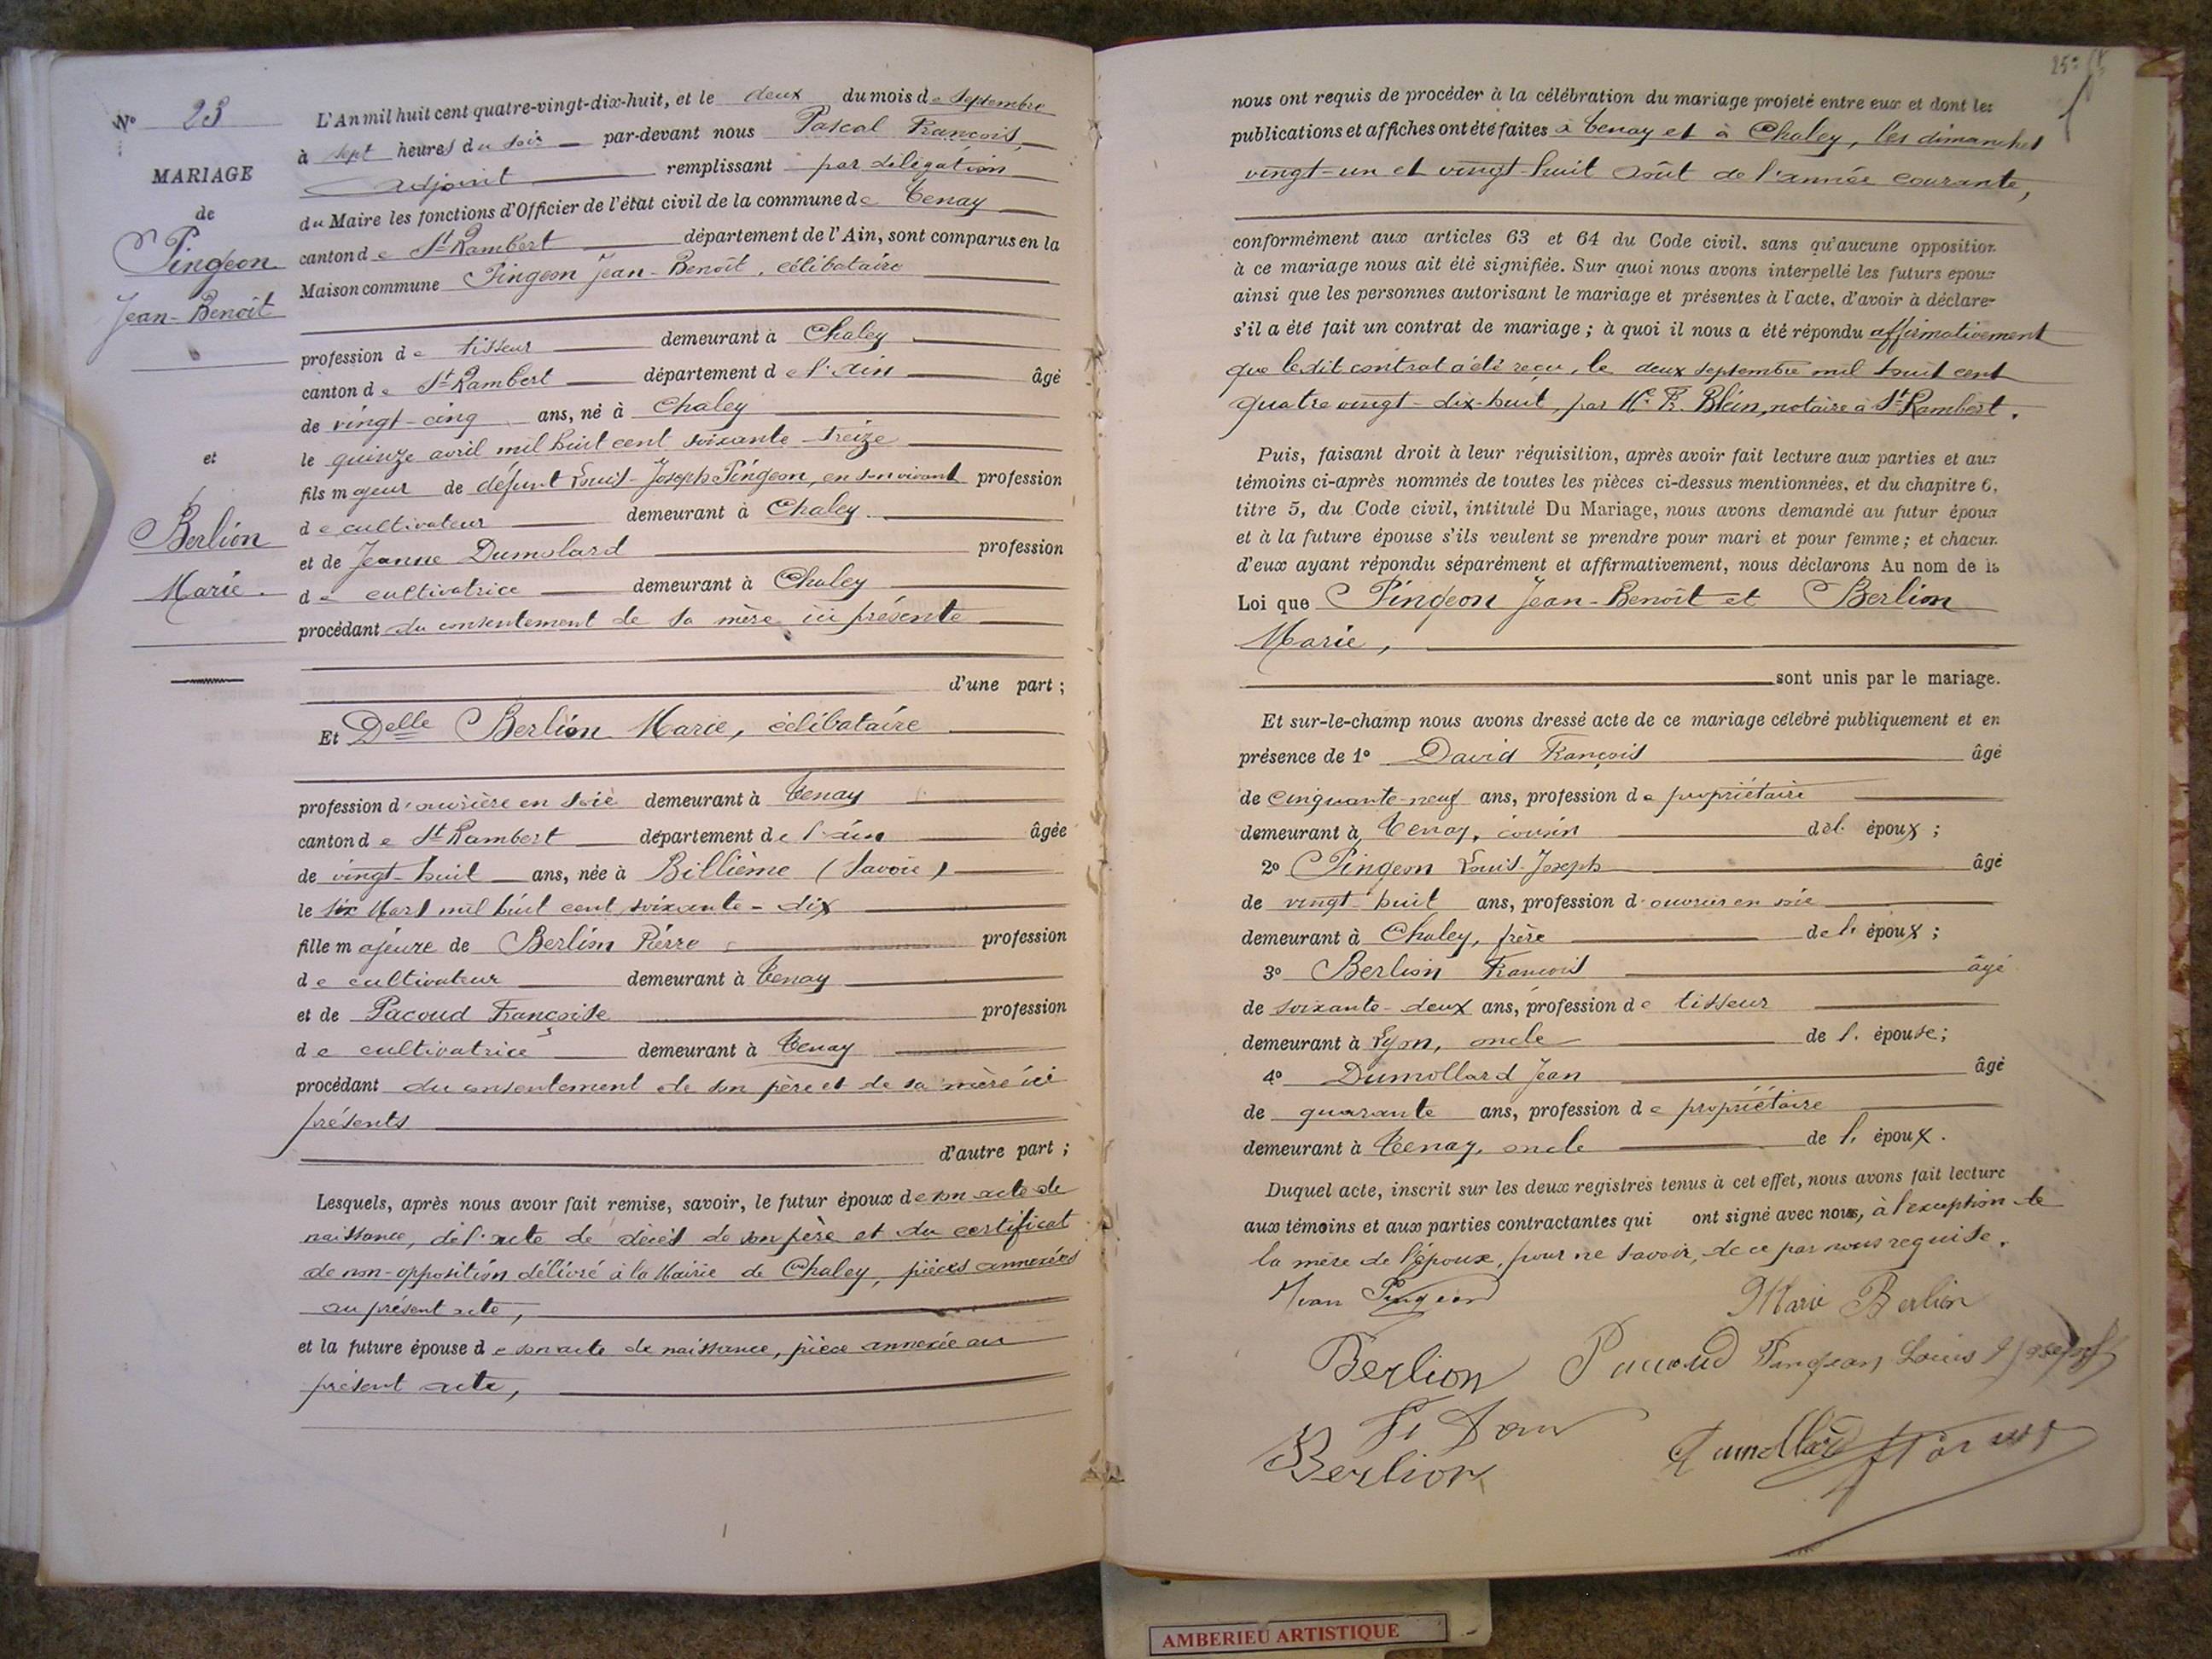 Nº 23
MARIAGE
de
Pingeon
Jean-Benoît
et
Berlion
Marie.
L'An mil huit cent quatre-vingt-dix-huit, et le deux du mois de Septembre
à sept heures du soir par-devant nous Pascal François,
adjoint remplissant par délégation
du Maire les fonctions d'Officier de l'état civil de la commune de Tenay
canton de St-Rambert département de l'Ain, sont comparus en la
Maison commune Pingeon Jean-Benoît, célibataire
profession de tisseur demeurant à Chaley
canton de St-Rambert département de l'Ain âgé
de vingt-cinq ans, né à Chaley
le quinze avril mil huit cent soixante-treize
fils majeur de défunt Louis-Joseph Pingeon, en son vivant profession
de cultivateur demeurant à Chaley
et de Jeanne Dumolard profession
de cultivatrice demeurant à Chaley
procédant du consentement de sa mère ici présente
d'une part ;
Et Delle Berlion Marie, célibataire
profession d'ouvrière en soie demeurant à Tenay
canton de St-Rambert département de l'Ain âgée
de vingt-huit ans, née à Billième (Savoie)
le six Mars mil huit cent soixante-dix
fille majeure de Berlion Pierre profession
de cultivateur demeurant à Tenay
et de Pacoud Françoise profession
de cultivatrice demeurant à Tenay
procédant du consentement de son père et de sa mère ici
présents
d'autre part ;
Lesquels, après nous avoir fait remise, savoir, le futur époux de son acte de
naissance, de l'acte de décès de son père et du certificat
de non-opposition délivré à la Mairie de Chaley, pièces annexées
au présent acte,
et la future épouse de son acte de naissance, pièce annexée au
présent acte,
nous ont requis de procéder à la célébration du mariage projeté entre eux et dont les
publications et affiches ont été faites à Tenay et à Chaley, les dimanches
vingt-un et vingt-huit août de l'année courante,
conformément aux articles 63 et 64 du Code civil, sans qu'aucune opposition
à ce mariage nous ait été signifiée. Sur quoi nous avons interpellé les futurs époux
ainsi que les personnes autorisant le mariage et présentes à l'acte, d'avoir à déclarer
s'il a été fait un contrat de mariage ; à quoi il nous a été répondu affirmativement
que ledit contrat a été reçu, le deux septembre mil huit cent
quatre vingt-dix-huit, par Me Blein, notaire à St-Rambert.
Puis, faisant droit à leur réquisition, après avoir fait lecture aux parties et aux
témoins ci-après nommés de toutes les pièces ci-dessus mentionnées, et du chapitre 6,
titre 5, du Code civil, intitulé Du Mariage, nous avons demandé au futur époux
et à la future épouse s'ils veulent se prendre pour mari et pour femme ; et chacun
d'eux ayant répondu séparément et affirmativement, nous déclarons Au nom de la
Loi que Pingeon Jean-Benoît et Berlion
Marie,
sont unis par le mariage.
Et sur-le-champ nous avons dressé acte de ce mariage célébré publiquement et en
présence de 1º David François âgé
de cinquante-neuf ans, profession de propriétaire
demeurant à Tenay, cousin de l' époux ;
2º Pingeon Louis-Joseph âgé
de vingt-huit ans, profession d'ouvrier en soie
demeurant à Chaley, frère de l' époux ;
3º Berlion François âgé
de soixante-deux ans, profession de tisseur
demeurant à Lyon, oncle de l' épouse ;
4º Dumollard Jean âgé
de quarante ans, profession de propriétaire
demeurant à Tenay, oncle de l' époux.
Duquel acte, inscrit sur les deux registres tenus à cet effet, nous avons fait lecture
aux témoins et aux parties contractantes qui ont signé avec nous, à l'exception de
la mère de l'époux, pour ne savoir, de ce par nous requise.
Pingeon Marie Berlion
Berlion Pacoud Pingeon Louis Joseph
Berlion Dumollard
AMBERIEU ARTISTIQUE